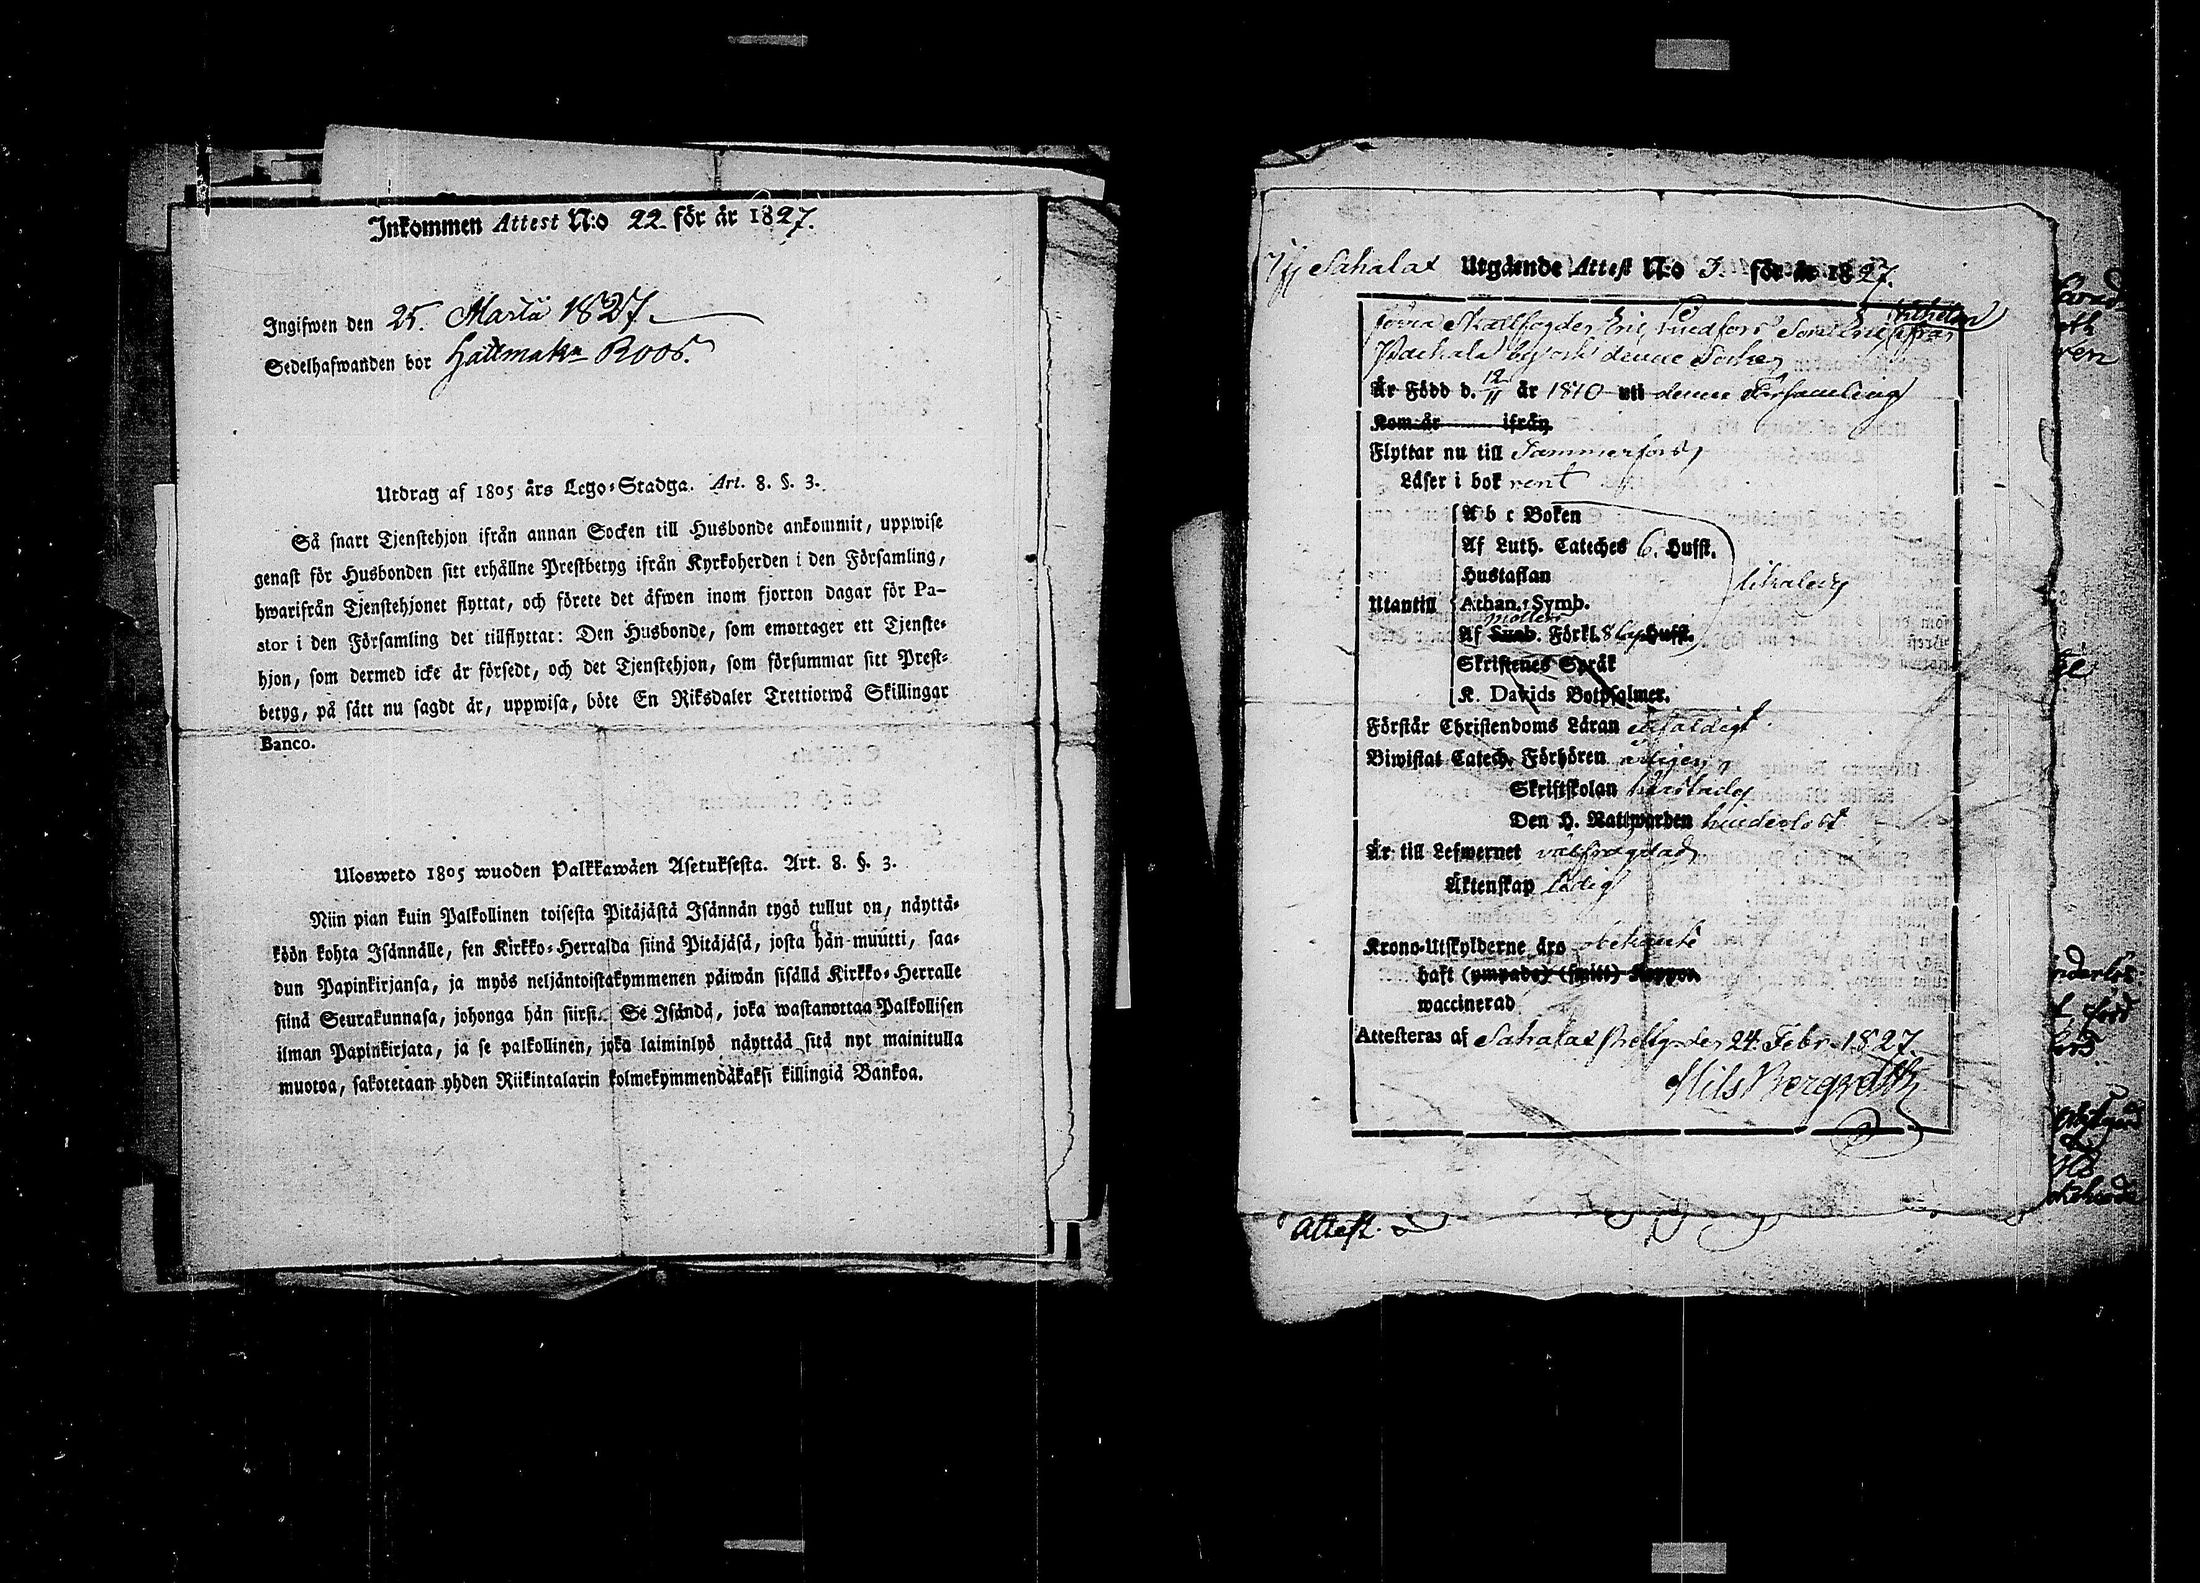 Inkommen Attest N:o 22. för år 1827.
Ingifwen den 25. Martii 1827.
Sedelhafwanden bor Hattmak:n Roos.
Utdrag af 1805 års Lego-Stadga. Art. 8. §. 3.
Så snart Tjenstehjon ifrån annan Socken till Husbonde ankommit, uppwise
genast för Husbonden sitt erhållne Prestbetyg ifrån Kyrkoherden i den Församling,
hwarifrån Tjenstehjonet flyttat, och förete det äfwen inom fjorton dagar för Pa-
stor i den Församling det tillflyttat: Den Husbonde, som emottager ett Tjenste-
hjon, som dermed icke är försedt, och det Tjenstehjon, som försummar sitt Prest-
betyg, på sätt nu sagdt är, uppwisa, böte En Riksdaler Trettiotwå Skillingar
Banco.
Ulosweto 1805 wuoden Palkkawäen Asetuksesta. Art. 8. §. 3.
Niin pian kuin Palkollinen toisesta Pitäjästä Isännän tygö tullut on, näyttä-
köön kohta Isännälle, sen Kirkko-Herralda siinä Pitäjäsä, josta hän muutti, saa-
dun Papinkirjansa, ja myös neljäntoistakymmenen päiwän sisällä Kirkko-Herralle
siinä Seurakunnasa, johonga hän siirsi. Se Isändä, joka wastanottaa Palkollisen
ilman Papinkirjata, ja se palkollinen, joka laiminlyö näyttää sitä nyt mainitulla
muotoa, sakotetaan yhden Riikintalarin kolmekymmendäkaksi killingiä Bankoa.
Sahalax Utgående Attest N:o 3. för år 1827.
Wilhelm
förra Skallfogden Eric Lindfors Son Eric ifrån
Pakkala by och denne Socken
Är Född d. 12/11 år 1810 uti denne Församling
Kom år ifrån
Flyttar nu till Tammerfors
Läser i bok rent
A b c Boken
Af Luth. Cateches 6. Hufst.
Hustaflan
Utantill Athan. Symb.
Möllers
Af Sweb. Förkl. 8 Cap Hufst.
Skriftenes Språk
K. Davids Botpsalmer.
Förstår Christendoms Läran enfaldigt
Biwistat Catech. Förhören årligen
Skriftskolan
Den H. Nattwarden hinderlöst
Är till Lefwernet välfrägdad
Äktenskap ledig
Krono-Utskylderne äro obekante
haft (ympade) (smitt) Koppor.
waccinerad
Attesteras af Sahalax Prestg. den 24 Febr. 1827
Nils Bergroth
Attest.